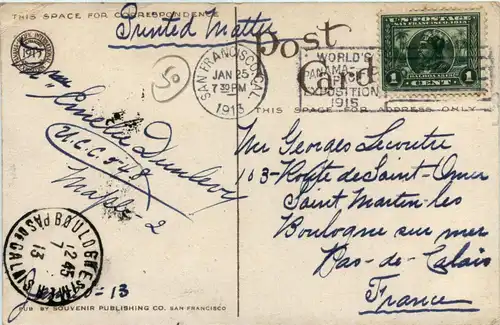 THIS SPACE FOR CORRESPONDENCE
Printed Matter
Post
Card
SAN FRANCISCO, CAL.
JAN 25
7 30 PM
1913
WORLD'S
PANAMA-
EXPOSITION
1915
U.S. POSTAGE
1 CENT 1
50
THIS SPACE FOR ADDRESS ONLY
U.C.C. 548
Maple-2
Mr Georges Lecoutre
103-Route de Saint-Omer
Saint Martin-les
Boulogne sur mer
Pas-de-Calais
France
BOULOGNE-S-MER
PAS DE CALAIS
12 45
7
13
13
PUB BY SOUVENIR PUBLISHING CO. SAN FRANCISCO